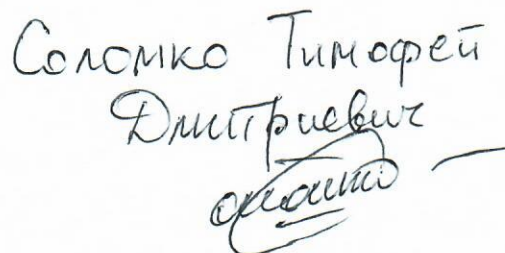 Соломко Тимофей
Дмитриевич